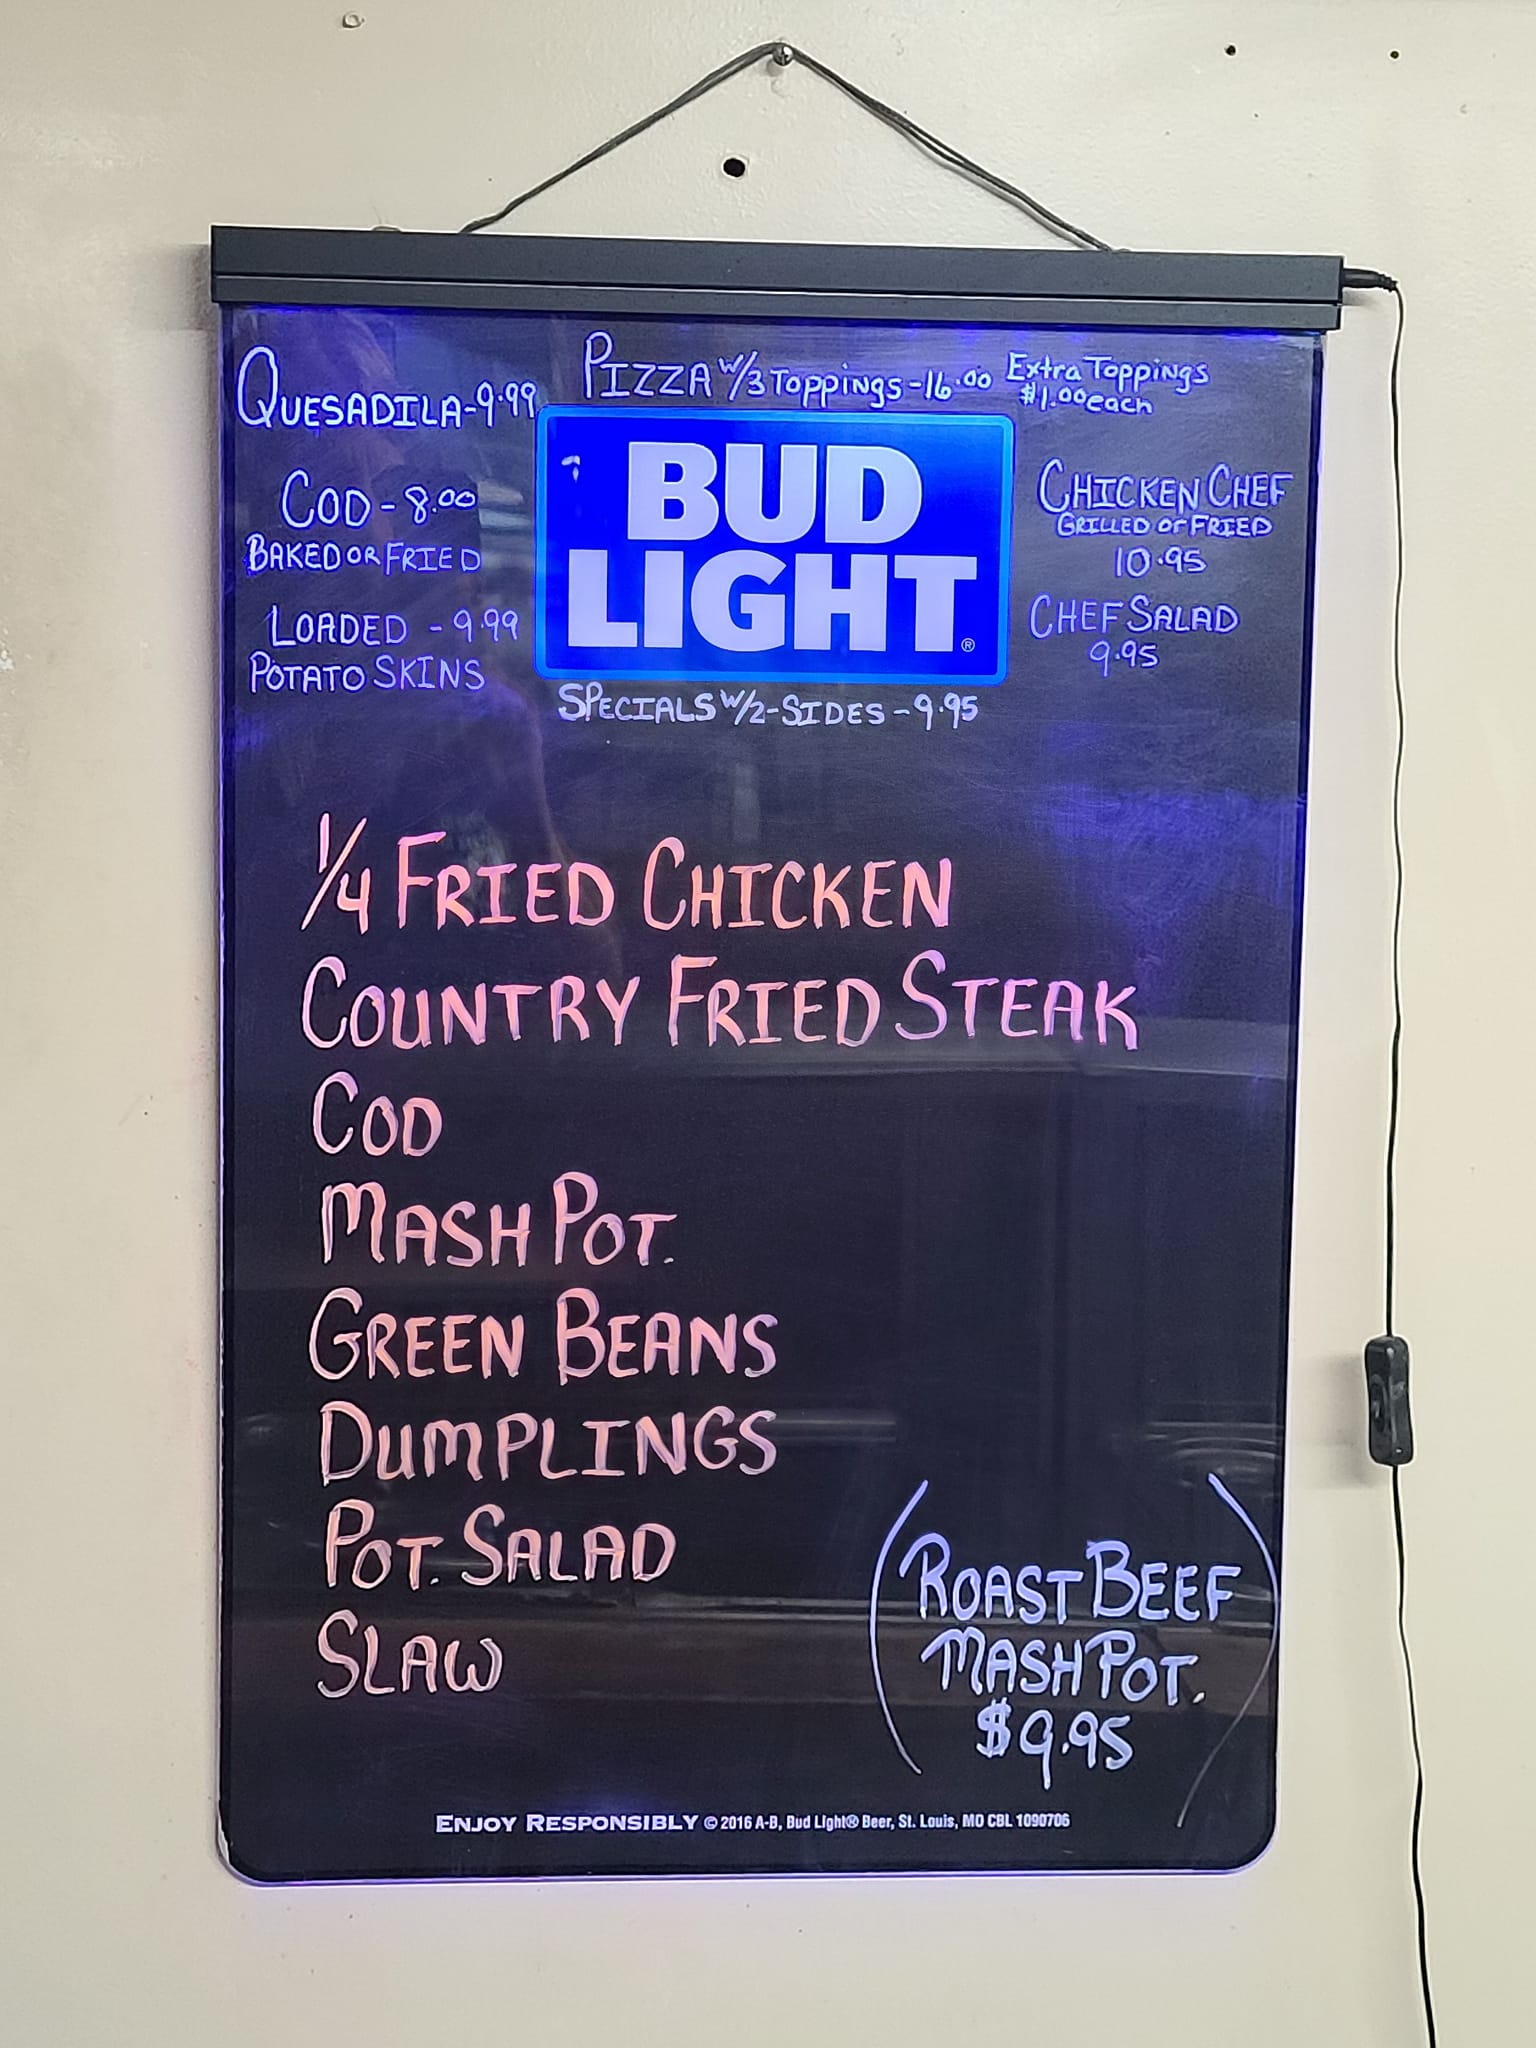 QUESADILA-9.99
PIZZA W/3 TOPPINGS-16.00
EXTRA TOPPINGS
$1.00 each
COD-8.00
BAKED OR FRIED
LOADED - 9.99
POTATO SKINS
BUD
LIGHT®
CHICKEN CHEF
GRILLED or FRIED
10.95
CHEF SALAD
9.95
SPECIALS W/2-SIDES-9.95
1/4 FRIED CHICKEN
COUNTRY FRIED STEAK
COD
MASH POT.
GREEN BEANS
DUMPLINGS
POT. SALAD
SLAW
(ROAST BEEF
MASH POT.
$9.95)
ENJOY RESPONSIBLY © 2016 A-B, Bud Light® Beer, St. Louis, MO CBL 1090706